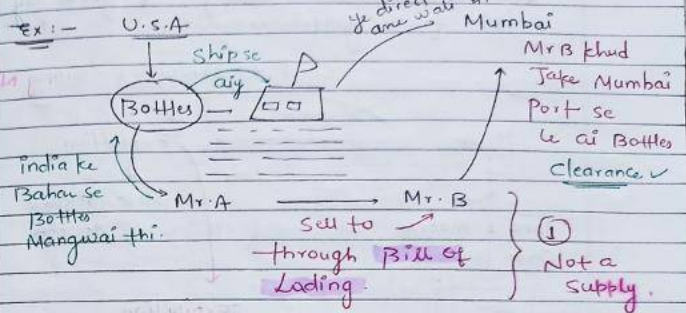 Ex:-
U.S.A
ye direct
ane wali
Mumbai
Ship se
aiy
Bottles
Mr B khud
Jake Mumbai
Port se
le ai Bottles
Clearance ✓
india ke
Bahar se
Bottles
Mangwai thi.
Mr. A
Mr. B
Sell to
through Bill of
Lading.
①
Not a
Supply.